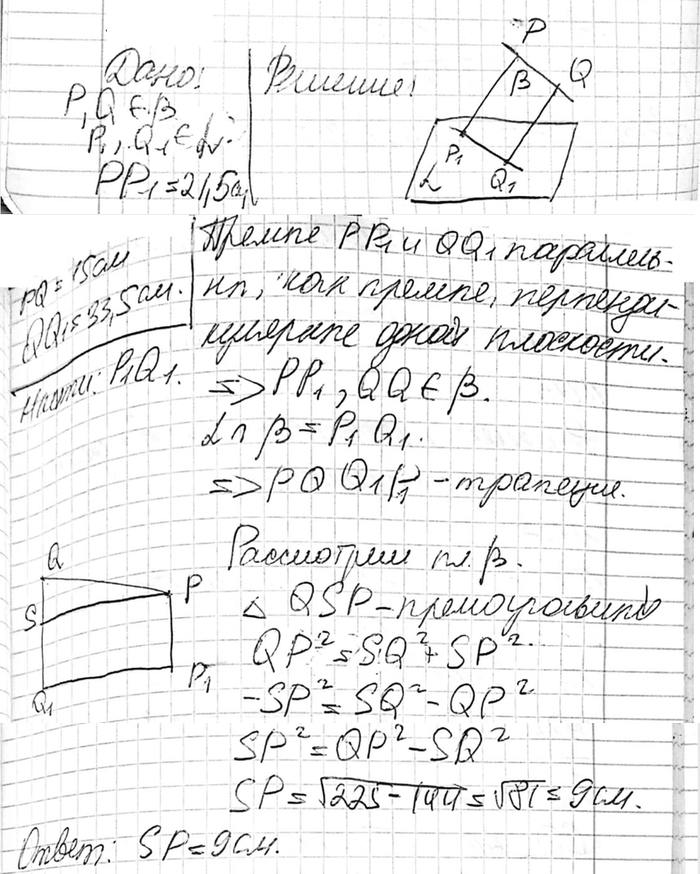 Дано:
P, Q ∈ β
P₁, Q₁ ∈ α.
PP₁ = 21,5 см
Решение:
P
β
Q
P₁
Q₁
α
PQ = 15 см
QQ₁ = 33,5 см.
Найти: P₁Q₁.
Прямые PP₁ и QQ₁ параллель-
ны, как прямые, перпенди-
кулярные одной плоскости.
=> PP₁, QQ ∈ β.
α ∩ β = P₁Q₁.
=> PQQ₁P₁ - трапеция.
Q
S
P
P₁
Q₁
Рассмотрим пл. β.
△ QSP - прямоугольный
QP² = SQ² + SP².
-SP² = SQ² - QP²
SP² = QP² - SQ²
SP = √225 - 144 = √81 = 9 см.
Ответ: SP = 9 см.